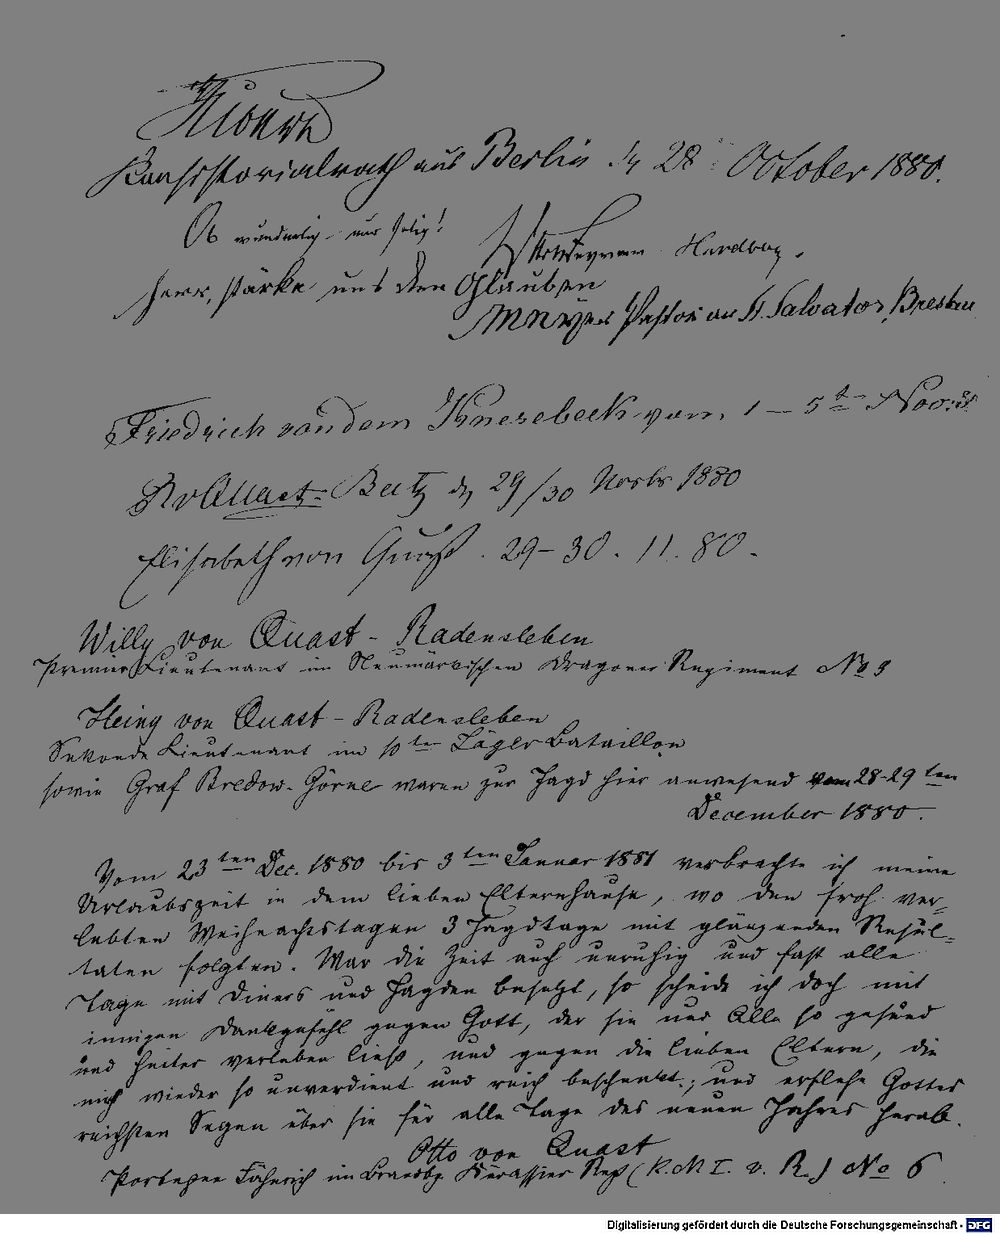 Consistorialrath aus Berlin d. 28 October 1880.
Ob wunderlich, nur selig!
Herr, stärke uns den Glauben
Meyer Pastor an St. Salvator, Breslau
Friedrich von dem Knesebeck vom 1 – 5ten Nov:
RvQuast. Beetz d. 29/30 Novbr 1880
Elisabeth von Quast. 29 – 30. 11. 80.
Willy von Quast – Radensleben
Premier Lieutenant im Neumärkischen Dragoner Regiment No 3
Heinz von Quast – Radensleben
Sekonde Lieutenant im 10ten Jäger Bataillon
sowie Graf Bredow-Görne waren zur Jagd hier anwesend vom 28-29ten
December 1880.
Vom 23ten Dec. 1880 bis 3ten Januar 1881 verbrachte ich meine
Urlaubszeit in dem lieben Elternhause, wo den froh ver-
lebten Weihnachtstagen 3 Jagdtage mit glänzenden Resul-
taten folgten. War die Zeit auch unruhig und fast alle
Tage mit Diners und Jagden besetzt, so scheide ich doch mit
innigem Dankgefühl gegen Gott, der sie uns Alle so gesund
und heiter verleben ließ, und gegen die lieben Eltern, die
mich wieder so unverdient und reich beschenkt; und erflehe Gottes
reichsten Segen über sie für alle Tage des neuen Jahres herab.
Otto von Quast
Portepee Fähnrich im Brandbg. Kürassier Regt (K. N. I. v. R.) No 6
Digitalisierung gefördert durch die Deutsche Forschungsgemeinschaft - DFG